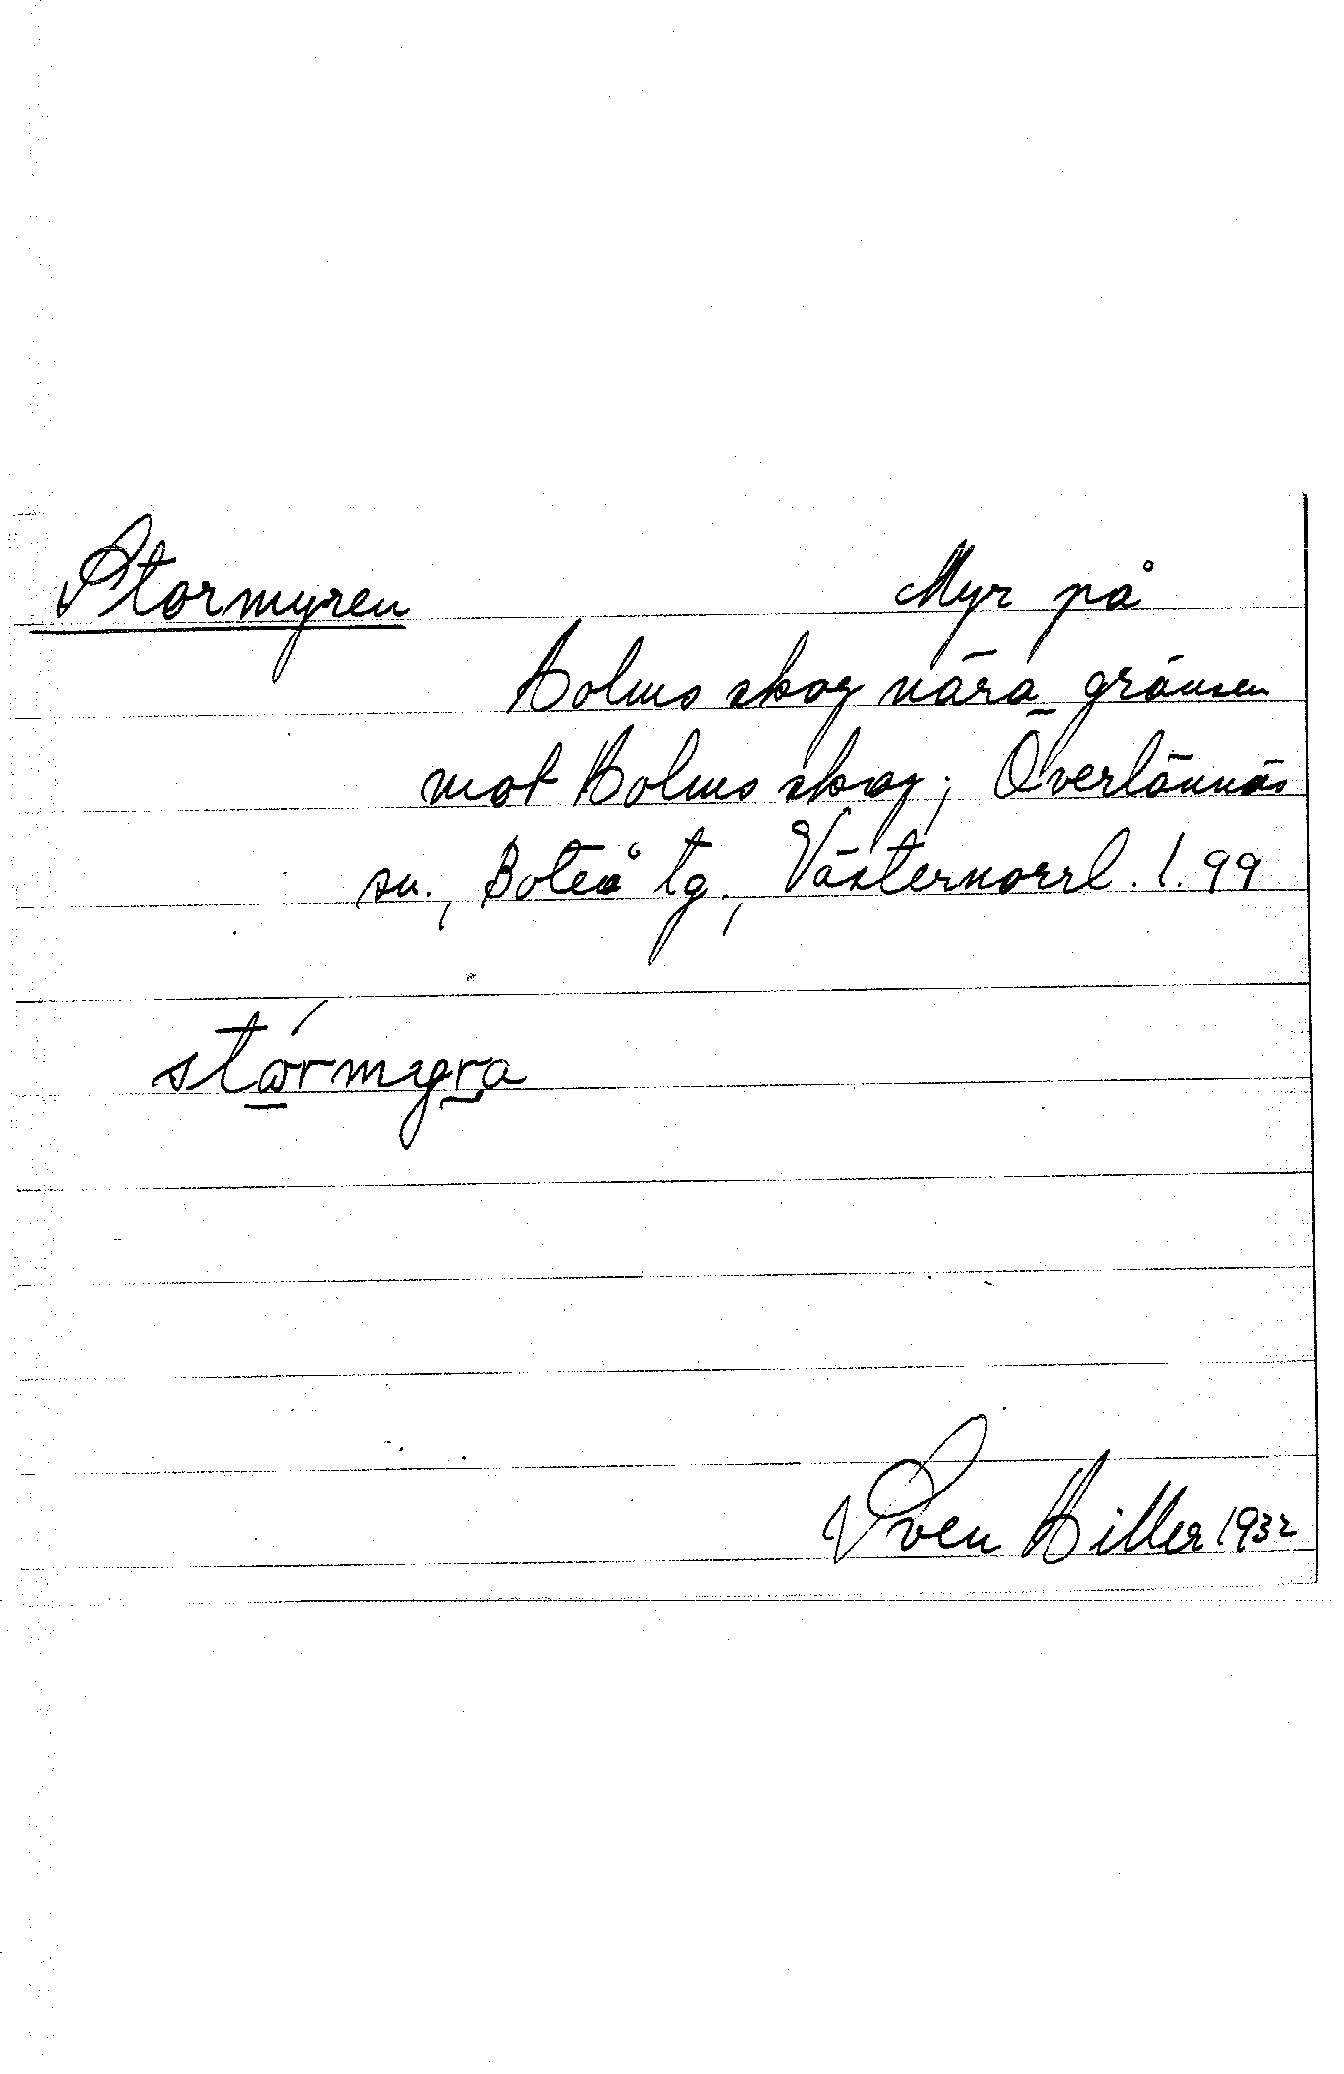 Stormyren Myr på
Holms skog nära gränsen
mot Holms skog; Överlännäs
sn., Boteå tg., Västernorrl. l. 99
stórmyra
Sven Hiller 1932